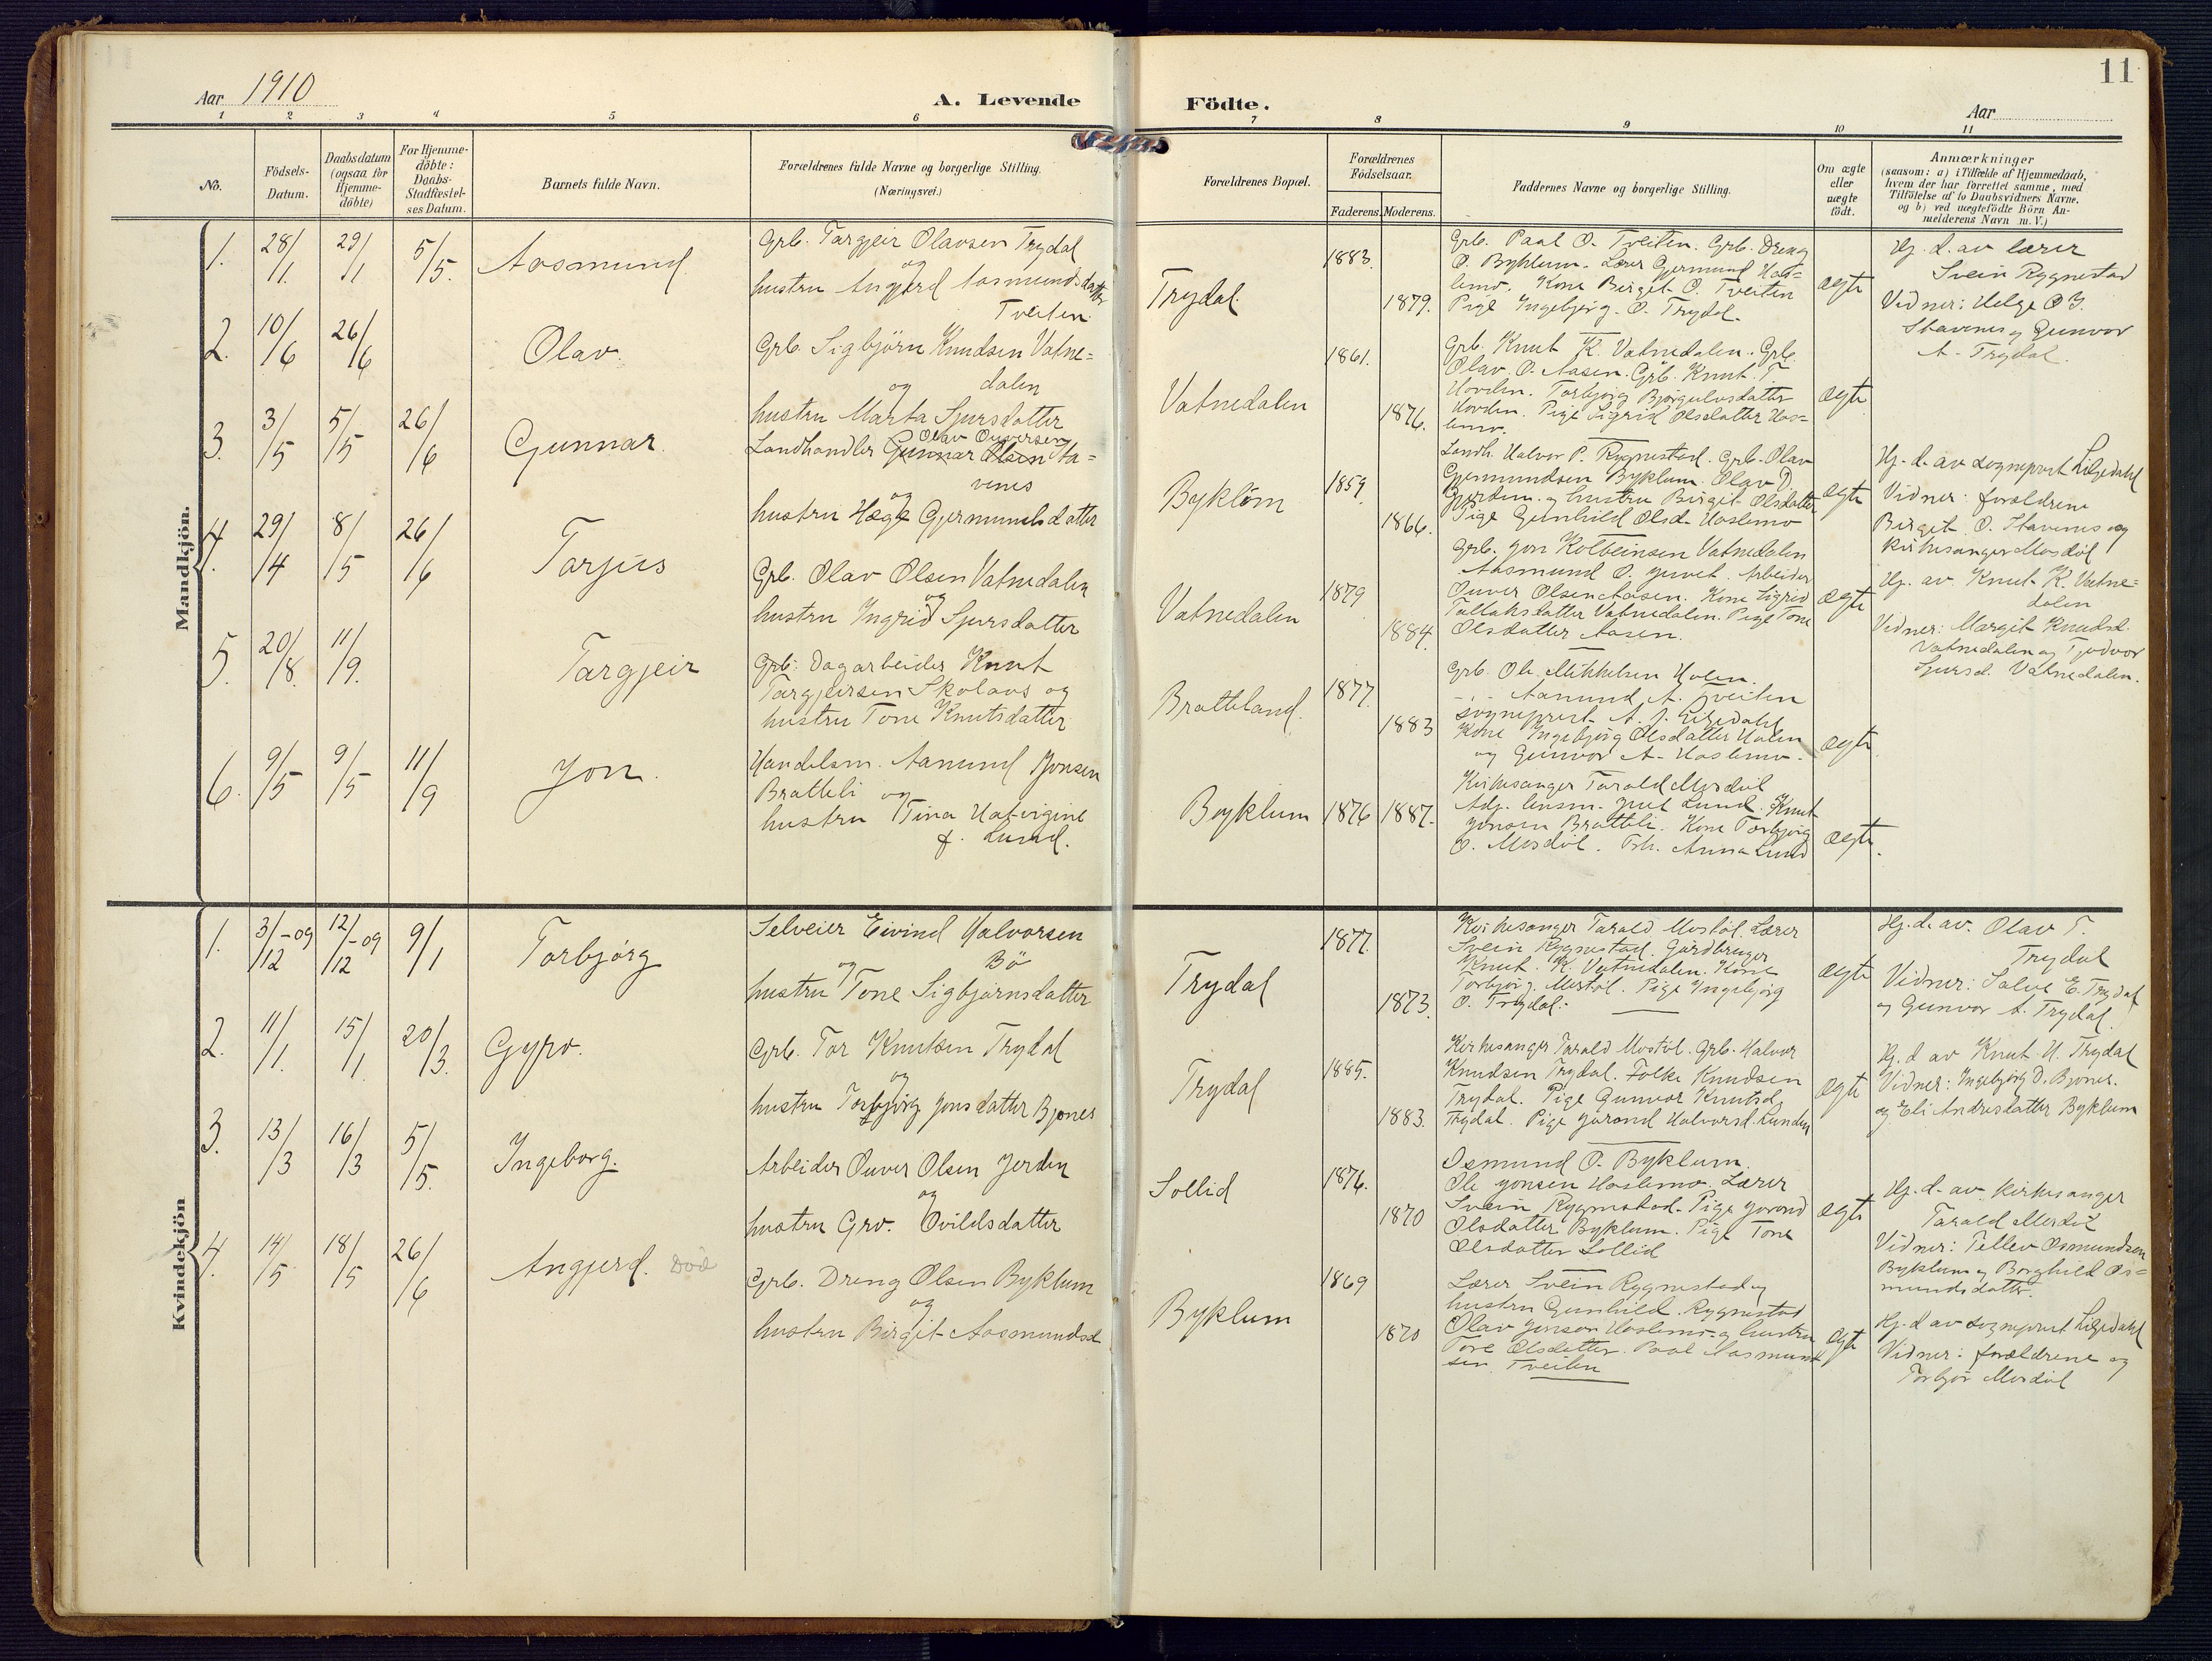 11
Aar 1910
A. Levende Födte.
Aar
1 2 3 4 5 6 7 8 9 10 11
No.
Födsels-
Datum.
Daabsdatum
(ogsaa for
Hjemme-
döbte)
For Hjemme-
döbte:
Daabs-
Stadfæstel-
ses Datum.
Barnets fulde Navn.
Forældrenes fulde Navne og borgerlige Stilling.
(Næringsvei.)
Forældrenes Bopæl.
Forældrenes
Födselsaar.
Faderens. Moderens.
Faddernes Navne og borgerlige Stilling.
Om ægte
eller
uægte
födt.
Anmærkninger
(saasom: a) i Tilfælde af Hjemmedaab,
hvem der har forrettet samme, med
Tilföielse af to Daabsvidners Navne,
og b) ved uægtefödte Börn An-
melderens Navn m. V.)
Mandkjön.
1. 28/1. 29/1 5/5. Aasmund
Grb. Targjeir Olavsen Trydal
og
hustru Angjerd Aasmundsdatter
Tveiten
Trydal.
1883.
1879.
Grb. Paal O. Tveiten. Grb. Dreng
O. Byklum. Lærer Gjermund Hos-
lemo. Kone Birgit O. Tveiten
Pige Ingebjörg. O. Trydal.
ægte
Hj. d. av lærer
Svein Rygnestad
Vidner: Helge O G.
Stavenes og Gunvor
A. Trydal.
2. 10/6 26/6 Olav.
Grb. Sigbjörn Knudsen Vatne=
og dalen
hustru Marta Sjursdatter
Vatnedalen
1861.
1876.
Grb. Knut K. Vatnedalen. Grb.
Olav O. Aasen. Grb. Knut T.
Hovden. Torbjörg Björgulvsdatter
Hovden. Pige Sigrid Olsdatter Hos=
lemo.
ægte
3. 3/5 5/5 26/6 Gunnar.
Olav Ouversen
Landhandler Gunnar Olsen Sta=
og venes
hustru Hæge Gjermundsdatter
Byklöm
1859.
1866.
Landh. Halvor P. Rygnestad. Grb. Olav
Gjermundsen Byklum. Olav D.
Gjerden. og hustru Birgit Olsdatter
Pige Gunhild Olsd. Hoslemo
ægte
Hj. d. av sogneprest Liljedahl
Vidner: forældrene
Birgit O. Stavenes og
kirkesanger Mosdöl
4. 29/4 8/5 26/6 Tarjus
Grb. Olav Olsen Vatnedalen
og
hustru Ingrid Sjursdatter
Vatnedalen
1879
1884.
Grb. Jon Kolbeinsen Vatnedalen
Aasmund O. Juvet. Arbeider
Ouver Olsen Aasen. Kone Sigrid
Tallaksdatter Vatnedalen. Pige Tone
Olsdatter Aasen.
ægte
Hj. av. Knut K. Vatne=
dalen
Vidner: Margit Knudsd.
Vatnedalen og Tjodvor
Sjursd. Vatnedalen.
5. 20/8. 11/9. Targjeir
Grb: Dagarbeider Knut
Targjeirsen Skolaas og
hustru Tone Knutsdatter
Bratteland.
1877.
1883
Grb. Ole Mikkelsen Holen.
-"- Aanund A. Tveiten
sogneprest. A. J. Liljedahl
Kone Ingebjörg Olsdatter Holen
og Gunvor A. Hoslemo.
ægte
6. 9/5 9/5 11/9 Jon.
Handelsm. Aanund Jonsen
Bratteli og
hustru Tina
f. Lund.
Byklum 1876 1887.
Kirkesanger Tarald Mosdöl
Adj. lensm. Lund. Knut
Jonsen Bratteli. Kone Torbjörg
O. Mosdöl. Anna Lund
ægte.
Kvindekjön
1. 3/12-09 12/12-09 9/1 Torbjörg
Selveier Eivind Halvorsen
og Bö
hustru Tone Sigbjörnsdatter
Trydal
1877.
1873.
Kirkesanger Tarald Mosdöl. Lærer
Svein Rygnestad. Gårdbruger
Knut. K. Vatnedalen. Kone
Torbjörg. Mosdöl. Pige Ingebjörg
O. Trydal.
ægte
Hj. d. av. Olav T.
Trydal
Vidner: Salve E. Trydal
og Gunvor A. Trydal.
2. 11/1. 15/1. 20/3. Gyro.
Grb. Tor Knutsen Trydal
og
hustru Torbjörg Jonsdatter Bjones
Trydal
1885.
1883.
Kirkesanger Tarald Mosdöl. Grb. Halvor
Knudsen Trydal. Folke Knudsen
Trydal. Pige Gunvor Knutsd.
Trydal. Pige Jorond Halvorsd. Lunden
ægte
Hj. d av Knut H. Trydal
Vidner: Ingebjörg D. Bjones.
og Eli Andresdatter Byklum
3. 13/3 16/3 5/5. Ingeborg.
Arbeider Ouver Olsen Jerden
og
hustru Gro. Ovildsdatter
Sollid
1876.
1870
Osmund O. Byklum.
Ole Jonsen Hoslemo. Lærer
Svein Rygnestad. Pige Jorond
Olsdatter Byklum. Pige Tone
Olsdatter Sollid
ægte
Hj. d. av. kirkesanger
Tarald Mosdöl
Vidner: Tellev Osmundsen
Byklum og Borghild Os=
mundsdatter.
4. 14/5 18/5 26/6 Angjerd. Död
Grb. Dreng Olsen Byklum
og
hustru Birgit Aasmundsd
Byklum
1869
1870
Lærer Svein Rygnestad og
hustru Gunhild. Rygnestad
Olav Jonson Hoslemo og hustru
Tore Olsdatter. Paal Aasmund
sen Tveiten
ægte
Hj. d av sogneprest Liljedahl
Vidner: forældrene og
Torbjör Mosdöl